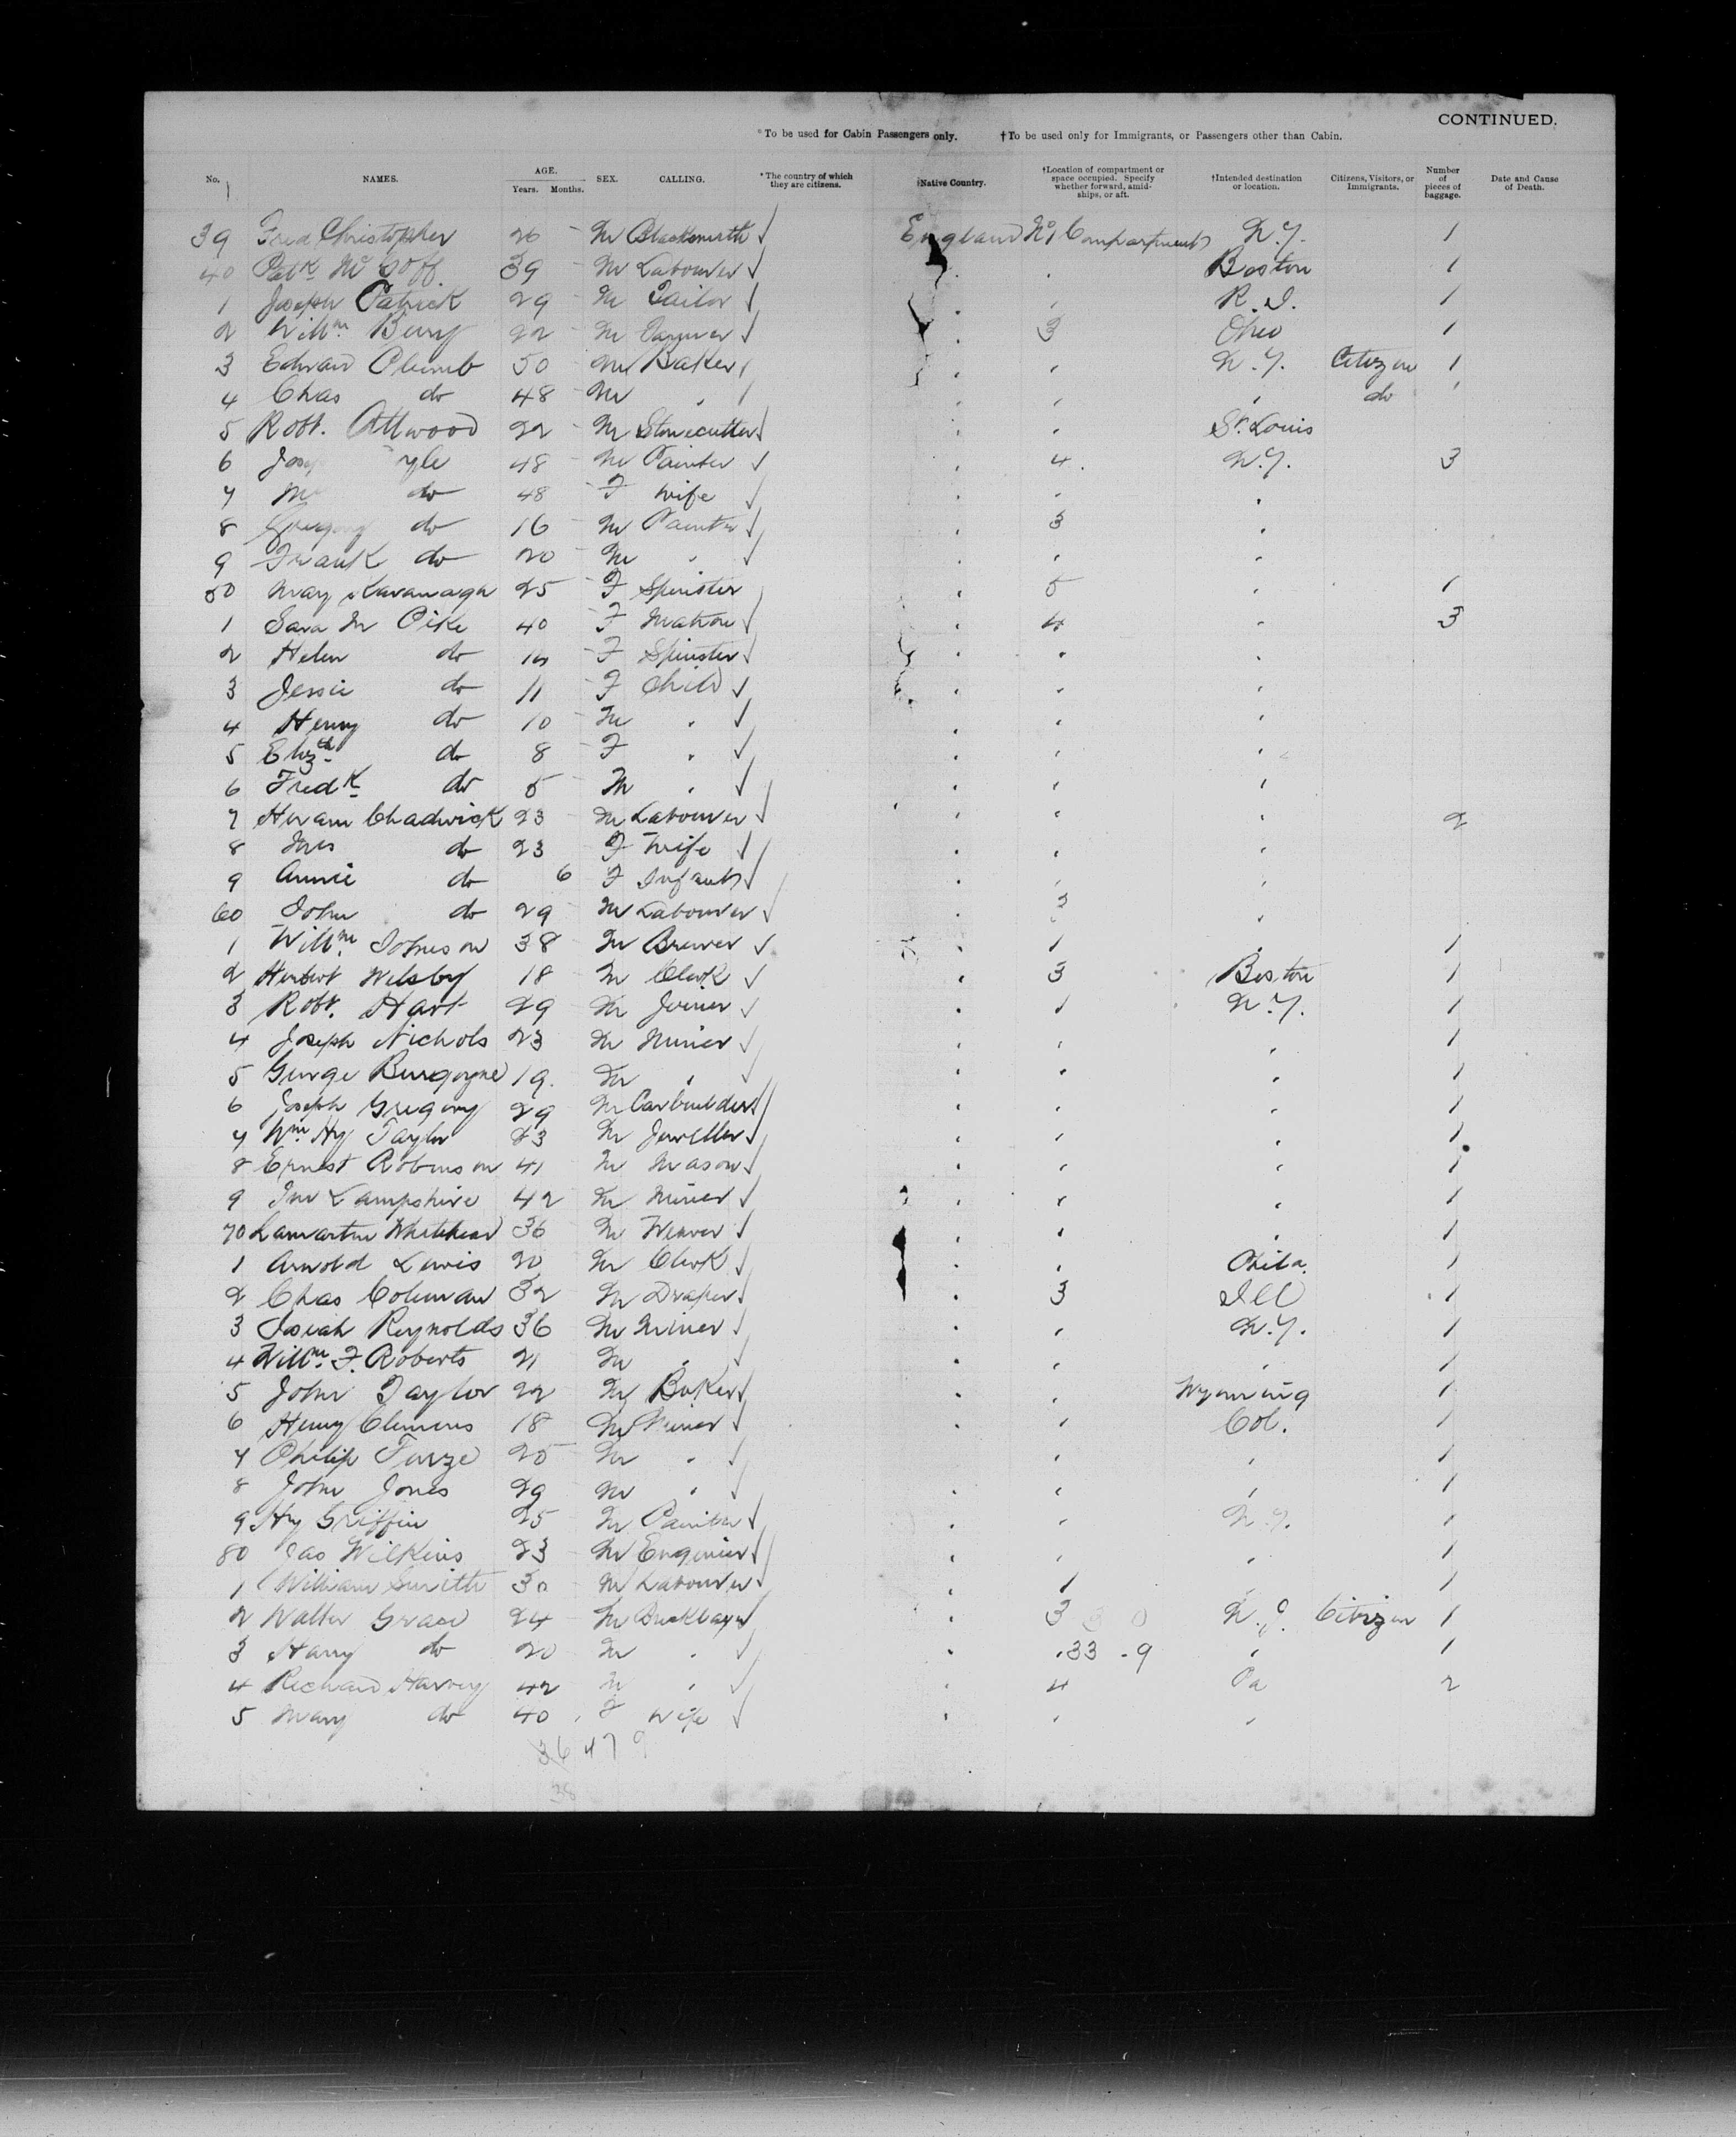 CONTINUED.
*To be used for Cabin Passengers only. †To be used only for Immigrants, or Passengers other than Cabin.
No. NAMES. AGE. Years. Months. SEX. CALLING. *The country of which they are citizens. †Native Country. †Location of compartment or space occupied. Specify whether forward, amidships, or aft. †Intended destination or location. Citizens, Visitors, or Immigrants. Number of pieces of baggage. Date and Cause of Death.
39 Fred Christopher 26 M Blacksmith England No 1 Compartment N.Y. 1
40 Patk Mc Goff 39 M Labourer " " Boston 1
1 Joseph Patrick 29 M Tailor " " R.I. 1
2 Willm Berry 22 M Farmer " 3 Ohio 1
3 Edward Plumb 50 M Baker " " N.Y. Citizen 1
4 Chas do 48 M " " " " do 1
5 Robt. Attwood 22 M Stonecutter " " St. Louis
6 48 M Painter " 4 N.Y. 3
7 do 48 F Wife " " "
8 Gregory do 16 M Painter " 3 "
9 Frank do 20 M " " " "
50 Mary Kavanagh 25 F Spinster " 5 " 1
1 Sara M Pike 40 F Matron " 4 " 3
2 Helen do F Spinster " " "
3 Jessie do 11 F Child " " "
4 Henry do 10 M " " " "
5 Elizth do 8 F " " " "
6 Fredk do 5 M " " " "
7 Hiram Chadwick 23 M Labourer " " " 2
8 Mrs do 23 F Wife " " "
9 Annie do 6 F Infant " " "
60 John do 29 M Labourer " 3 "
1 Willm Johnson 38 M Brewer " 1 " 1
2 Herbert Welsby 18 M Clerk " 3 Boston 1
3 Robt. Hart 29 M Joiner " 1 N.Y. 1
4 Joseph Nichols 23 M Miner " " " 1
5 George Burgoyne 19 M " " " " 1
6 Joseph Gregory 29 M Carbuilder " " " 1
7 Wm Hy Taylor 23 M Jeweller " " " 1
8 Ernest Robinson 41 M Mason " " " 1
9 Jno Lampshire 42 M Miner " " " 1
70 Lamartine Whitehead 36 M Weaver " " " 1
1 Arnold Lewis 20 M Clerk " " Phila. 1
2 Chas Coleman 32 M Draper " 3 Ill 1
3 Josiah Reynolds 36 M Miner " " N.Y. 1
4 Willm F. Roberts 21 M " " " " 1
5 John Taylor 22 M Baker " " Wyoming 1
6 Henry Clemens 18 M Miner " " Col. 1
7 Philip Furze 25 M " " " " 1
8 John Jones 29 M " " " " 1
9 Hy Griffin 25 M Painter " " N.Y. 1
80 Jas Wilkins 23 M Engineer " " " 1
1 William Smith 30 M Labourer " 1 " 1
2 Walter Grace 24 M Bricklayer " 3 3 0 N.J. Citizen 1
3 Harry do 20 M " " " 33 - 9 " 1
4 Richard Harvey 42 M " " 4 Pa 2
5 Mary do 40 F Wife " " "
36 47 9
38